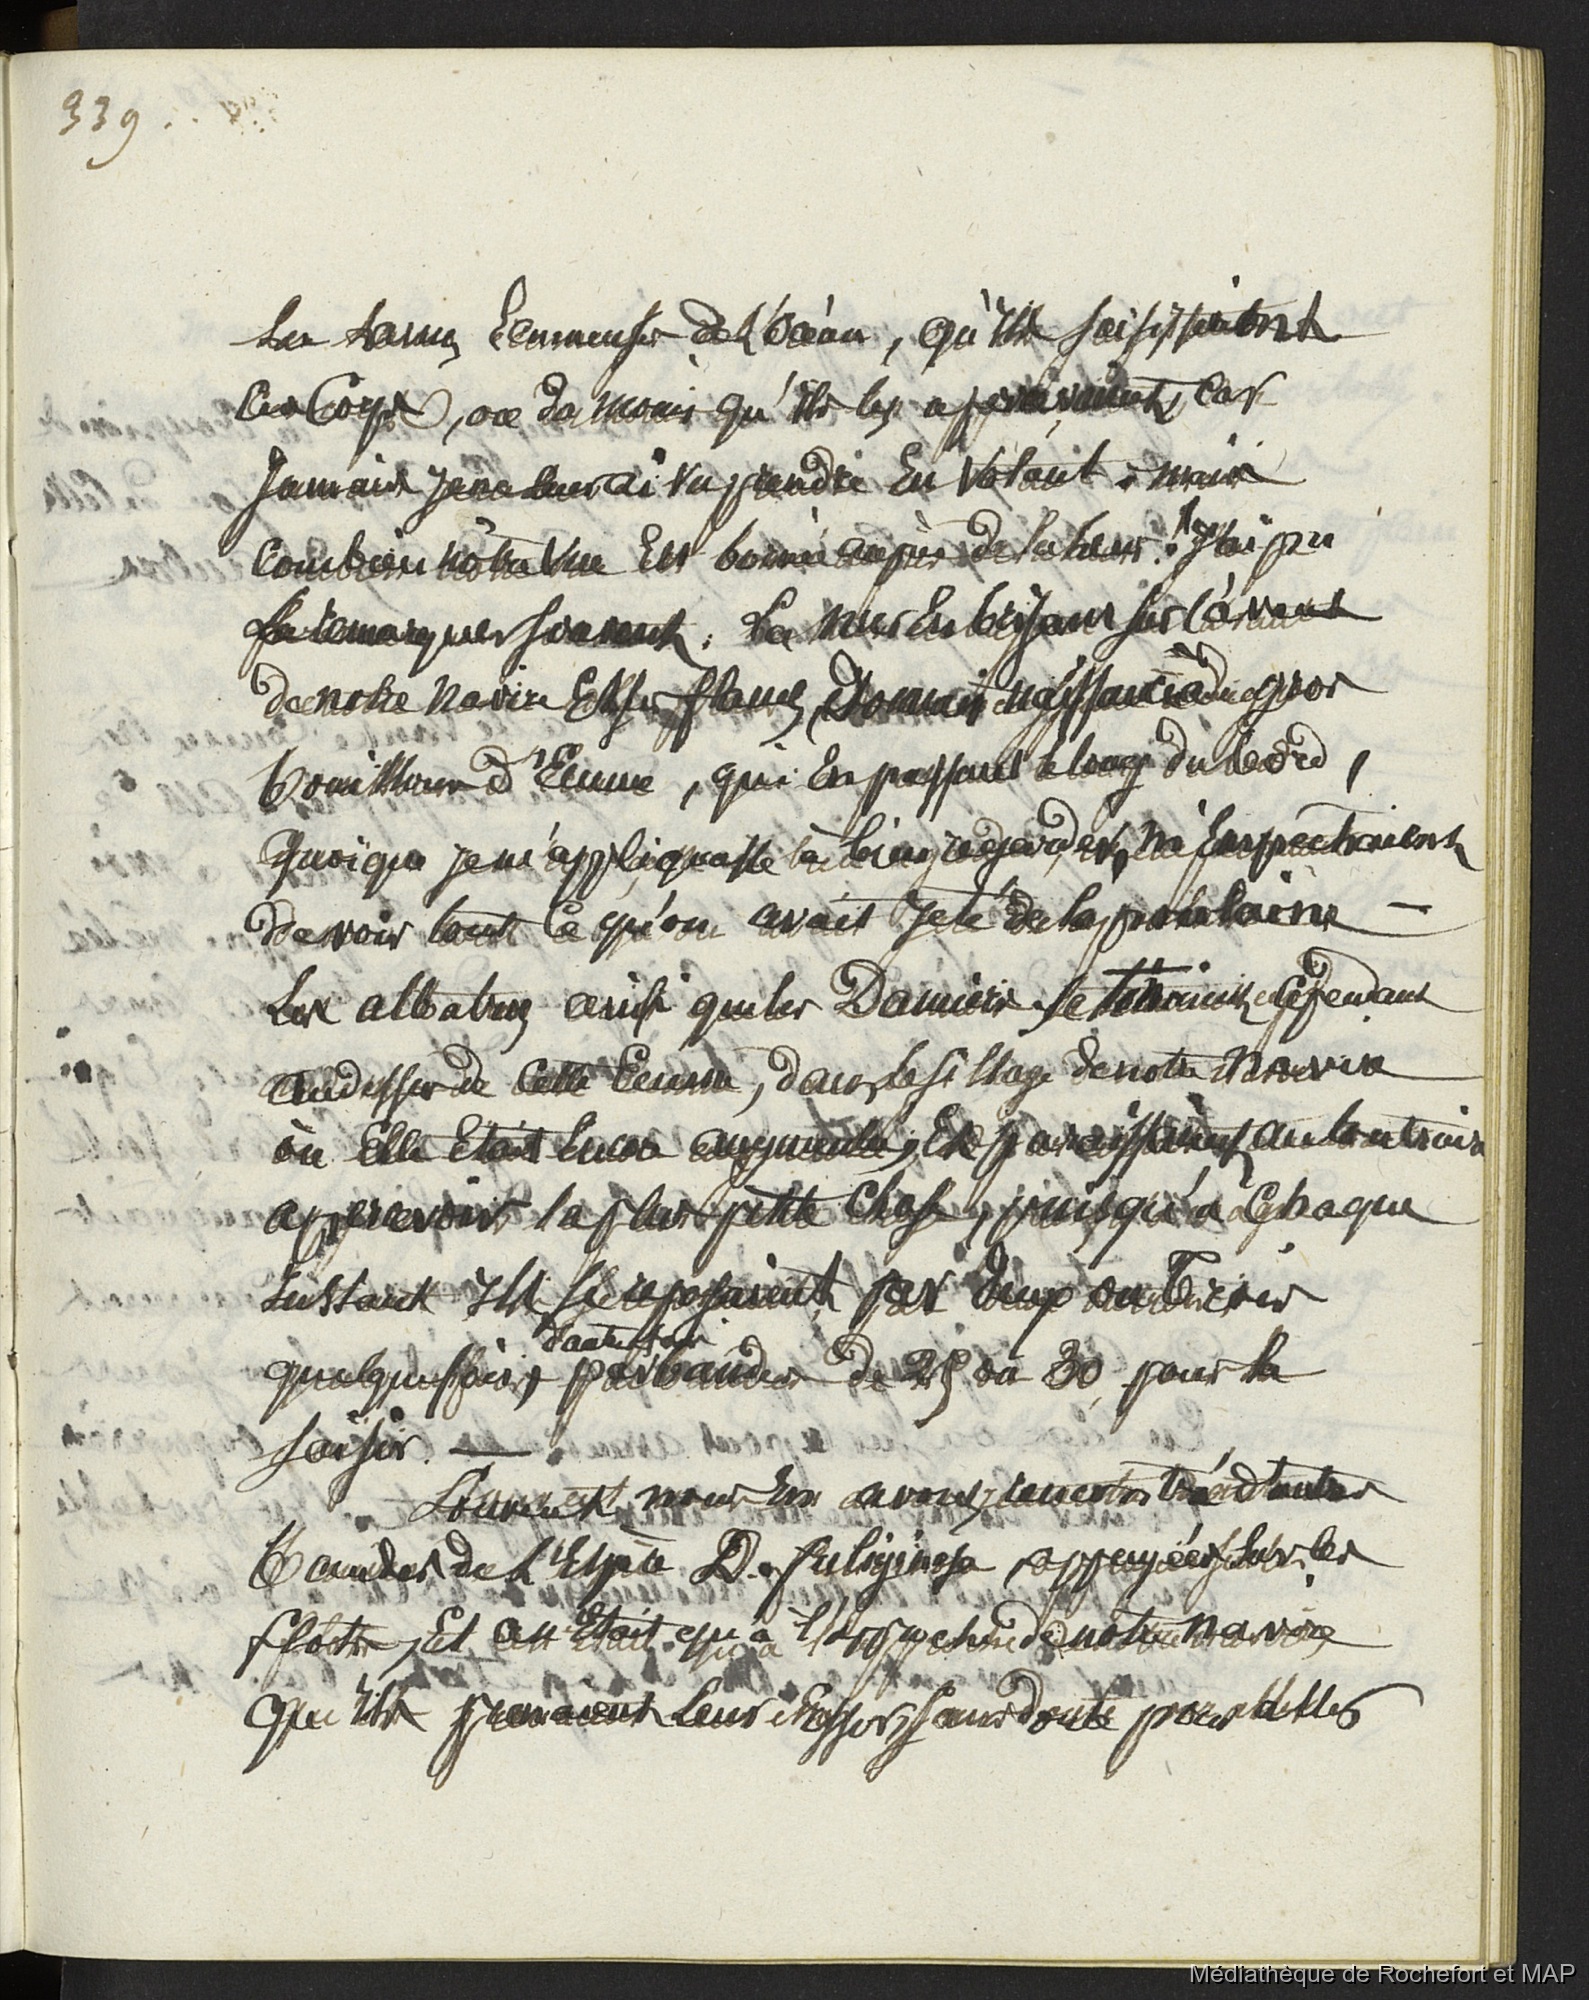 339.
les lames écumeuses de l'océan, qu'ils saisissaient
ces Corps, ou du moins qu'ils les appercevaient, car
jamais je ne leur ai vu prendre en volant. mais
combien nôtre vue est bornée auprès de la leur! j'ai pu
le remarquer souvent. La mer en brisant sur l'avant
de notre navire et ses flancs, donnait naissance à de gros
bouillons d'Ecume, qui en passant le long du bord,
quoique je m'appliquasse à bien regarder, m'empechaient
de voir tout ce qu'on avait jeté de la poulaine —
Les albatros ainsi que les Damiers se tenaient cependant
au dessus de cette Ecume, dans le sillage de notre navire
où elle était encor augmentée, et paraissaient au contraire
appercevoir la plus petite chose, puisqu'à chaque
instant ils se reposaient par deux ou trois
d'autres fois
quelquefois, par bandes de 25 ou 30 pour la
saisir. —
Souvent nous en avons rencontré d'autres
bandes de l'Espèce D. fuliginosa, appuyées sur les
flots, et ce n'était qu'à l'approche de notre navire
qu'ils prenaient leur essor, sans doute pour
Médiathèque de Rochefort et MAP